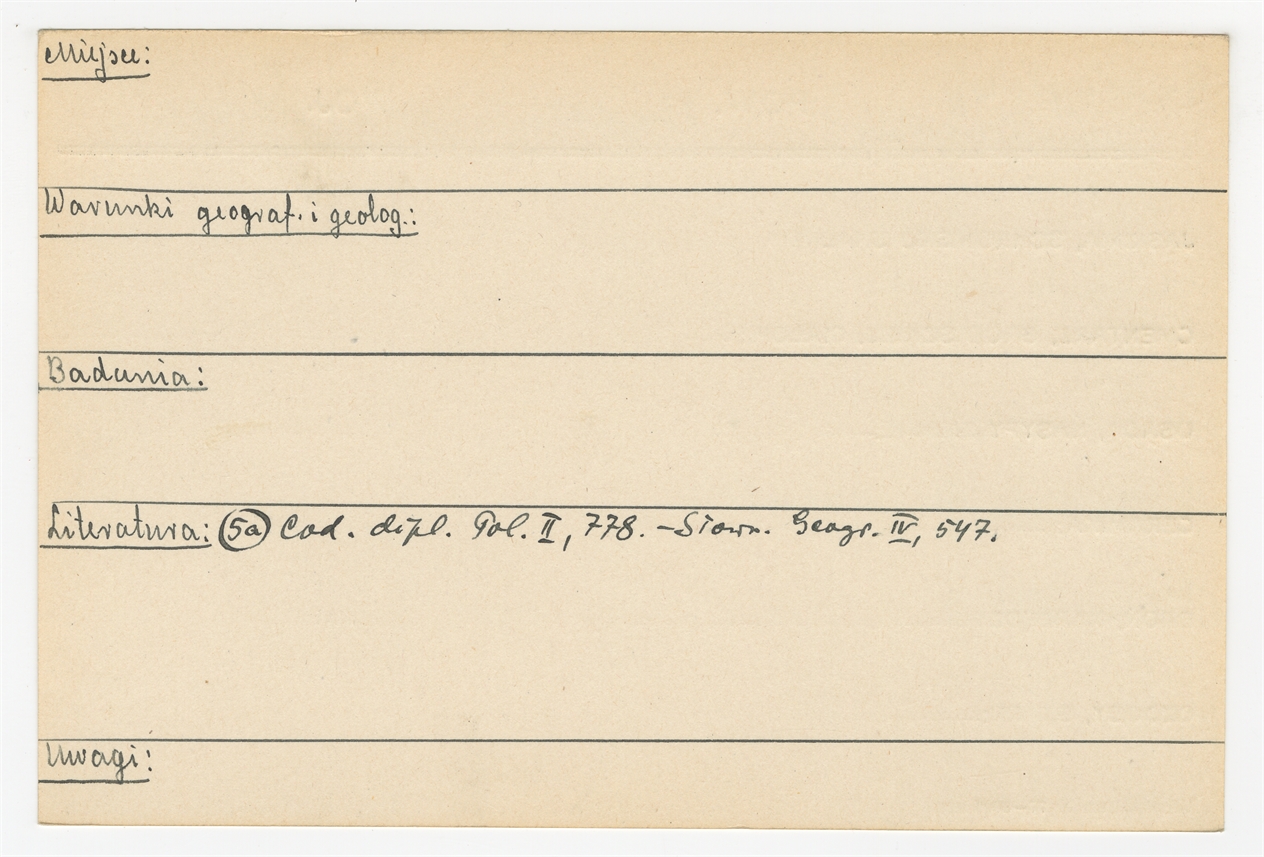 Miejsce:
Warunki geograf. i geolog.:
Badania:
Literatura: (5a) Cod. dipl. Pol. II, 778. – Słown. Geogr. IV, 547.
Uwagi: